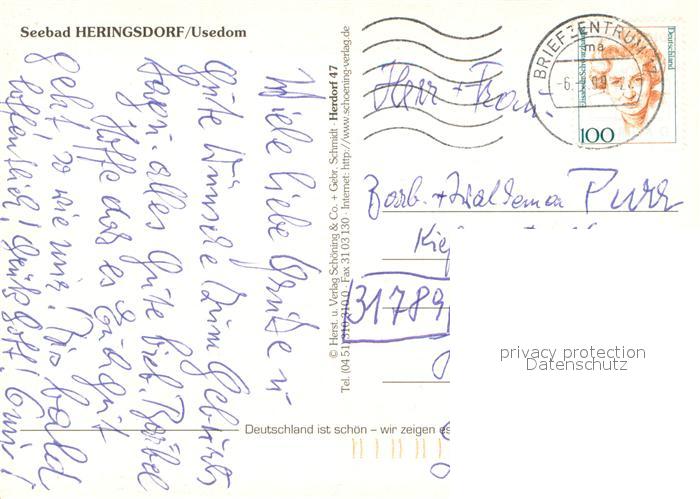 Seebad HERINGSDORF/Usedom
Viele liebe Grüße u
Gute Wünsche zum Geburts
tag u. alles Gute lieb. Bärbel
Hoffe das es Euch gut
geht so wie mir! Bis bald
hoffentlich! Grüß Gott!
© Herst. u. Verlag Schöning & Co. + Gebr. Schmidt · Herdorf 47
Tel. (04 51) 310 310 0 · Fax 31 03 130 · Internet: http://www.schoening-verlag.de
Deutschland ist schön – wir zeigen es
BRIEFZENTRUM 17
ma
-6.
99
Deutschland
100
Herr + Frau
Barb. + Waldemar Purr
31789
privacy protection
Datenschutz